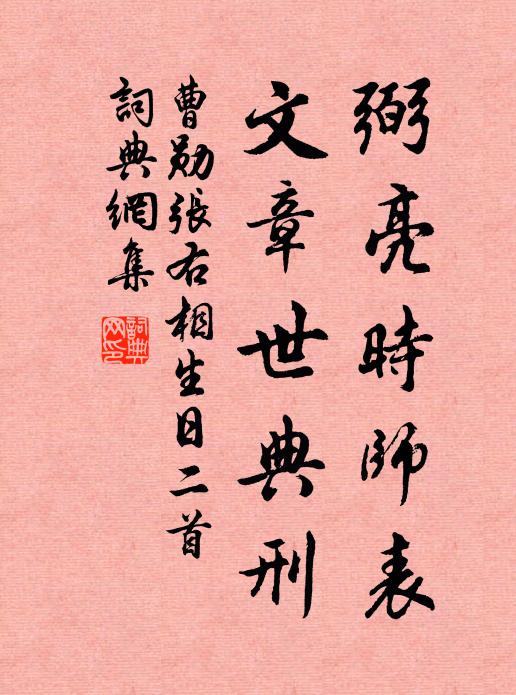 弼亮時師表
文章世典刑
曹勛張右相生日二首
詞典網集
詞典網印